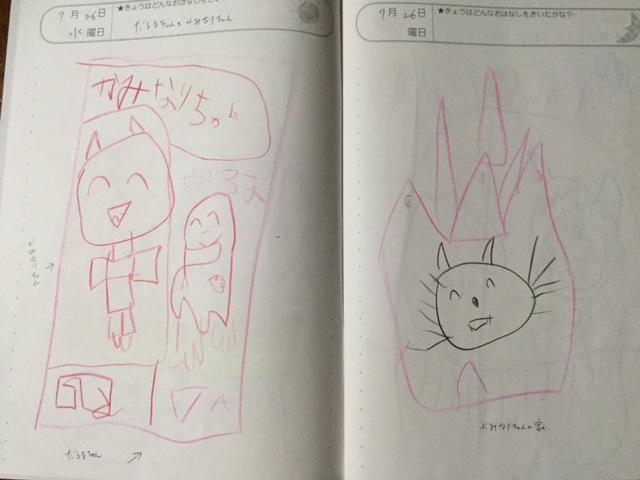 7月26日
水曜日
★きょうはどんなおはなしをきいたかな?
だるまちゃんとかみなりちゃん
かみなりちゃん
だるま
かみなりちゃん
だるまちゃん
7月26日
曜日
★きょうはどんなおはなしをきいたかな?
かみなりちゃんの家。